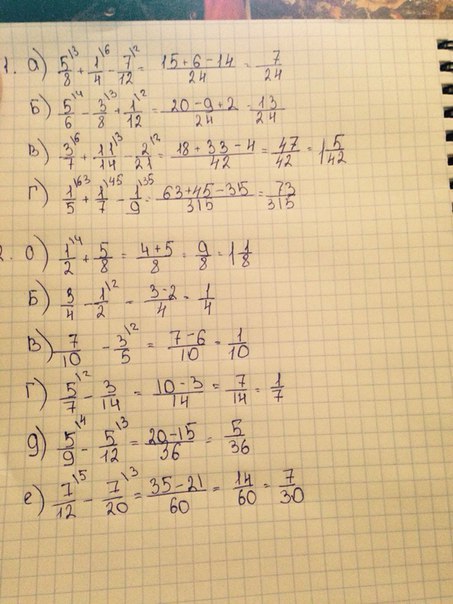 1. а) 5\3/8 + 1\6/4 - 7\2/12 = 15+6-14/24 = 7/24
Б) 5\4/6 - 3\3/8 + 1\2/12 = 20-9+2/24 = 13/24
В) 3\6/7 + 11\3/14 - 2\2/21 = 18+33-4/42 = 47/42 = 1 5/42
Г) 1\63/5 + 1\45/7 - 1\35/9 = 63+45-35/315 = 73/315
2. а) 1\4/2 + 5/8 = 4+5/8 = 9/8 = 1 1/8
Б) 3/4 - 1\2/2 = 3-2/4 = 1/4
В) 7/10 - 3\2/5 = 7-6/10 = 1/10
Г) 5\2/7 - 3/14 = 10-3/14 = 7/14 = 1/7
д) 5\4/9 - 5\3/12 = 20-15/36 = 5/36
е) 7\5/12 - 7\3/20 = 35-21/60 = 14/60 = 7/30